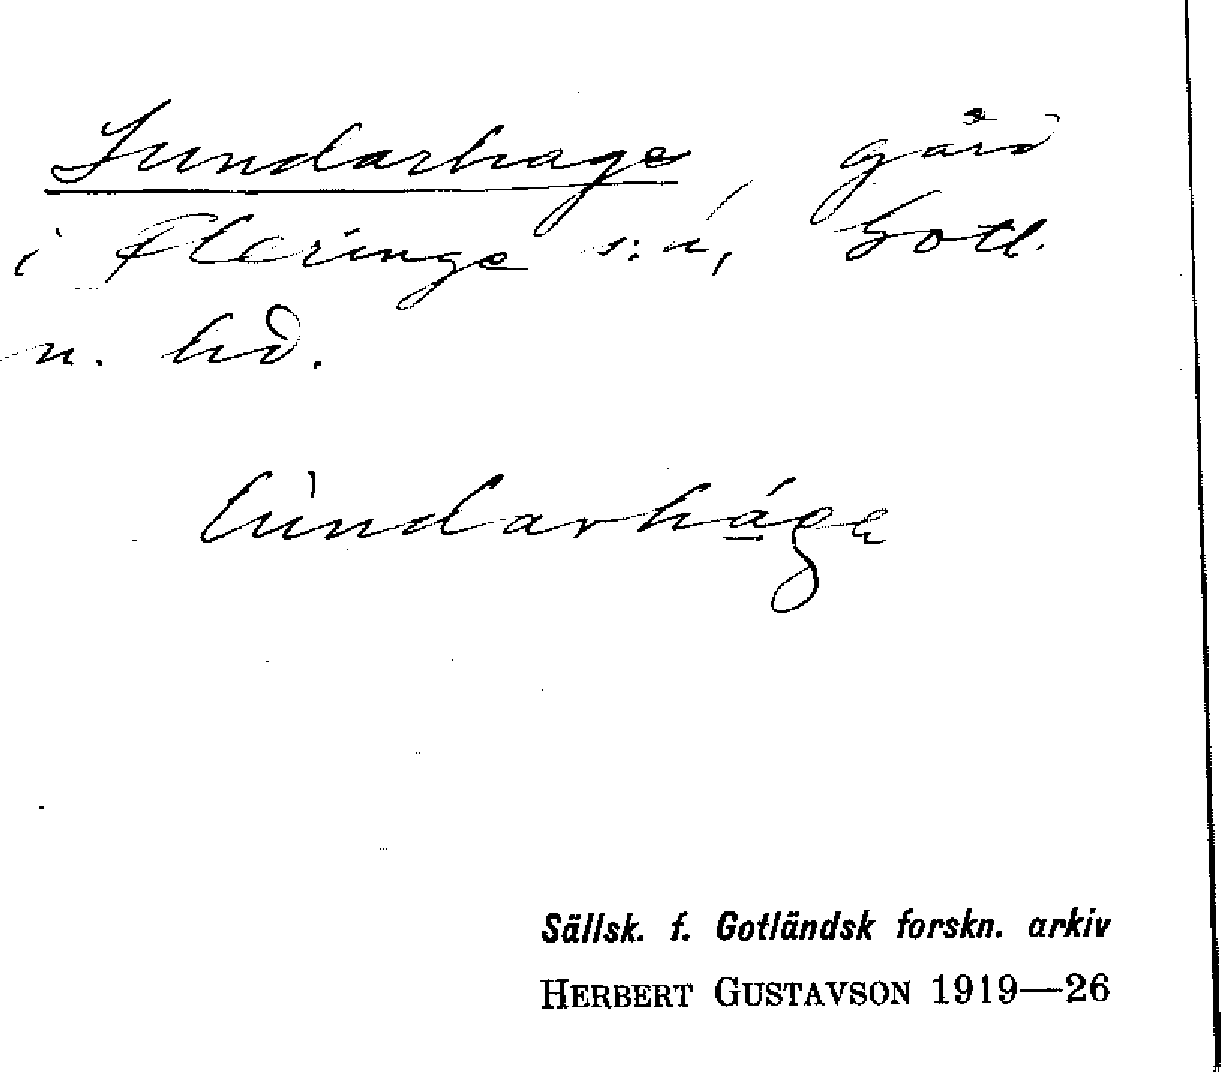 Lundarhage, gård
i Fleringe s:n, Gotl.
n. hd.
lùndarháge
Sällsk. f. Gotländsk forskn. arkiv
HERBERT GUSTAVSON 1919—26